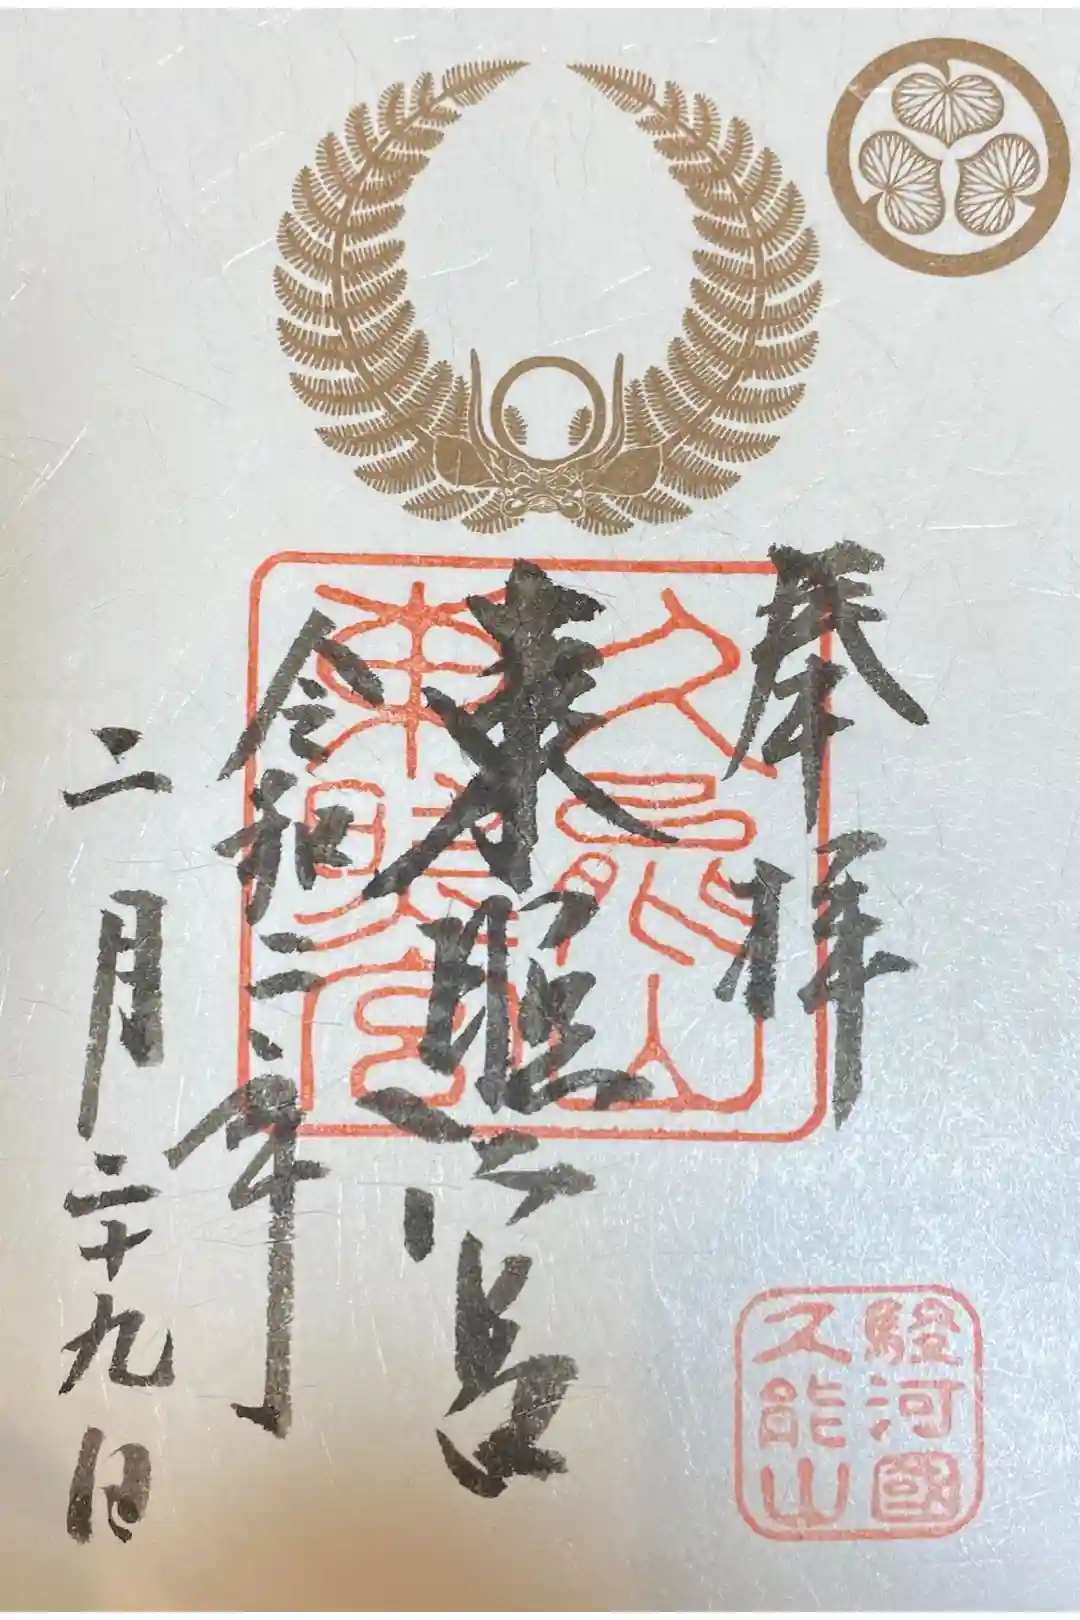 奉拝
東照宮
令和二年
二月二十九日
久能山
東照宮
駿河國
久能山